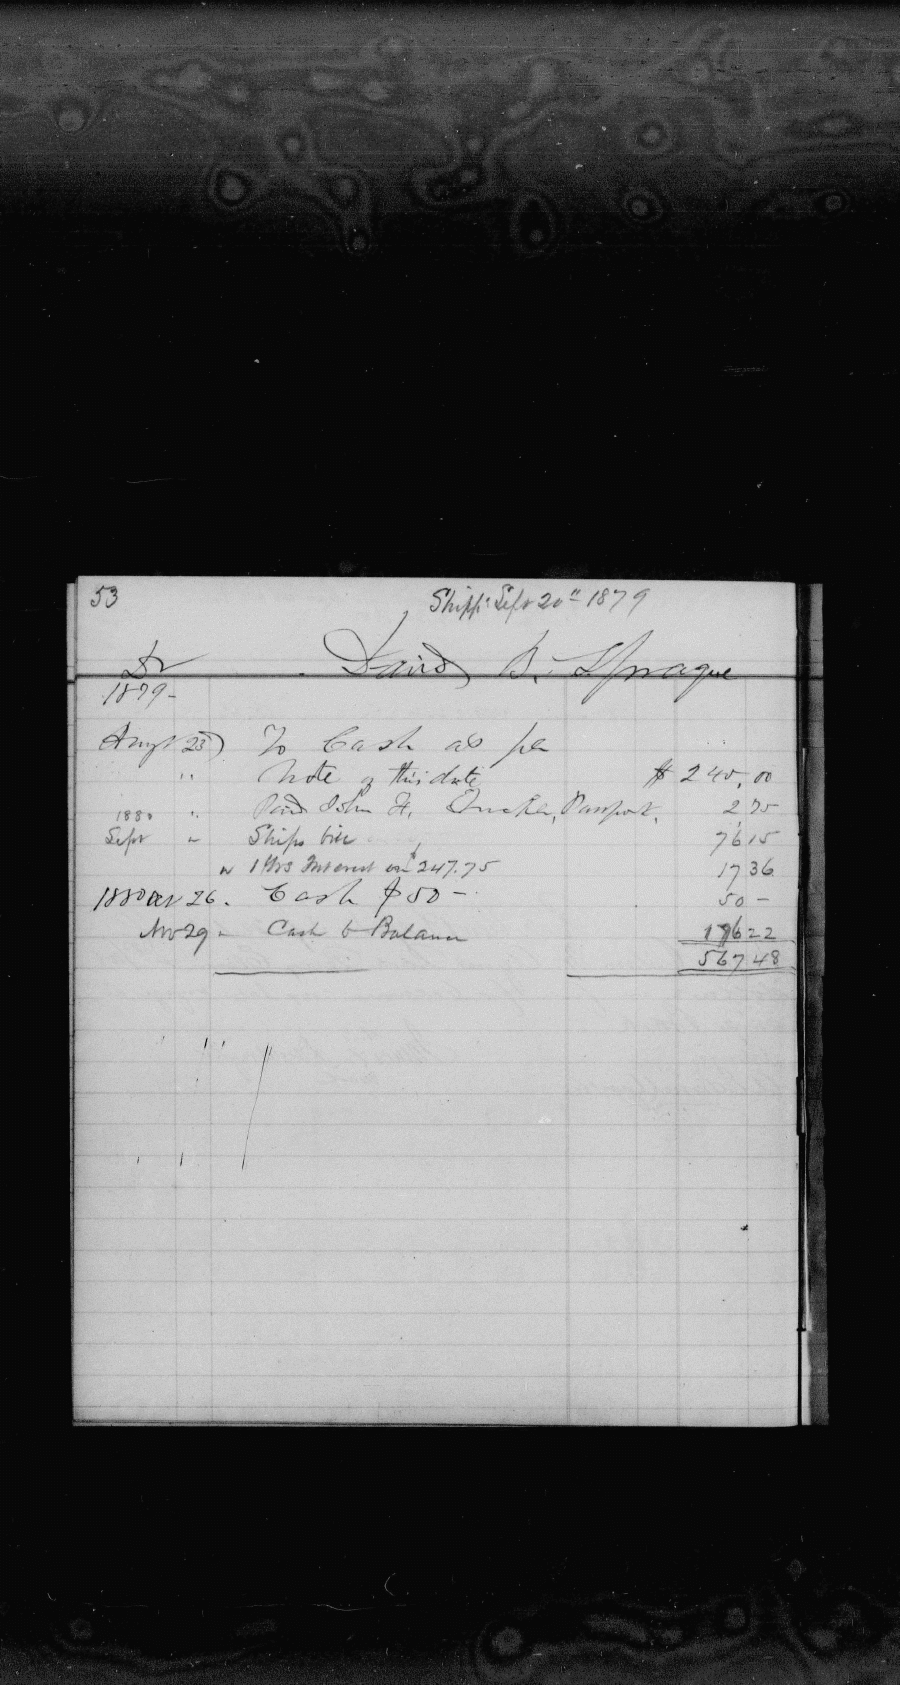 53
Shipp'd Sept 20" 1879
Dr David B. Sprague
1879-
Augt 23) To Cash as per
" Note of this date $ 245.00
" Paid John H. Passport. 2 75
1880
Sept " Ships bill 76 15
" 1 Yrs Interest on $247.75 17 36
1880 Oct 26. Cash $50- 50 -
Nov 29 " Cash to Balance 176 22
567 48